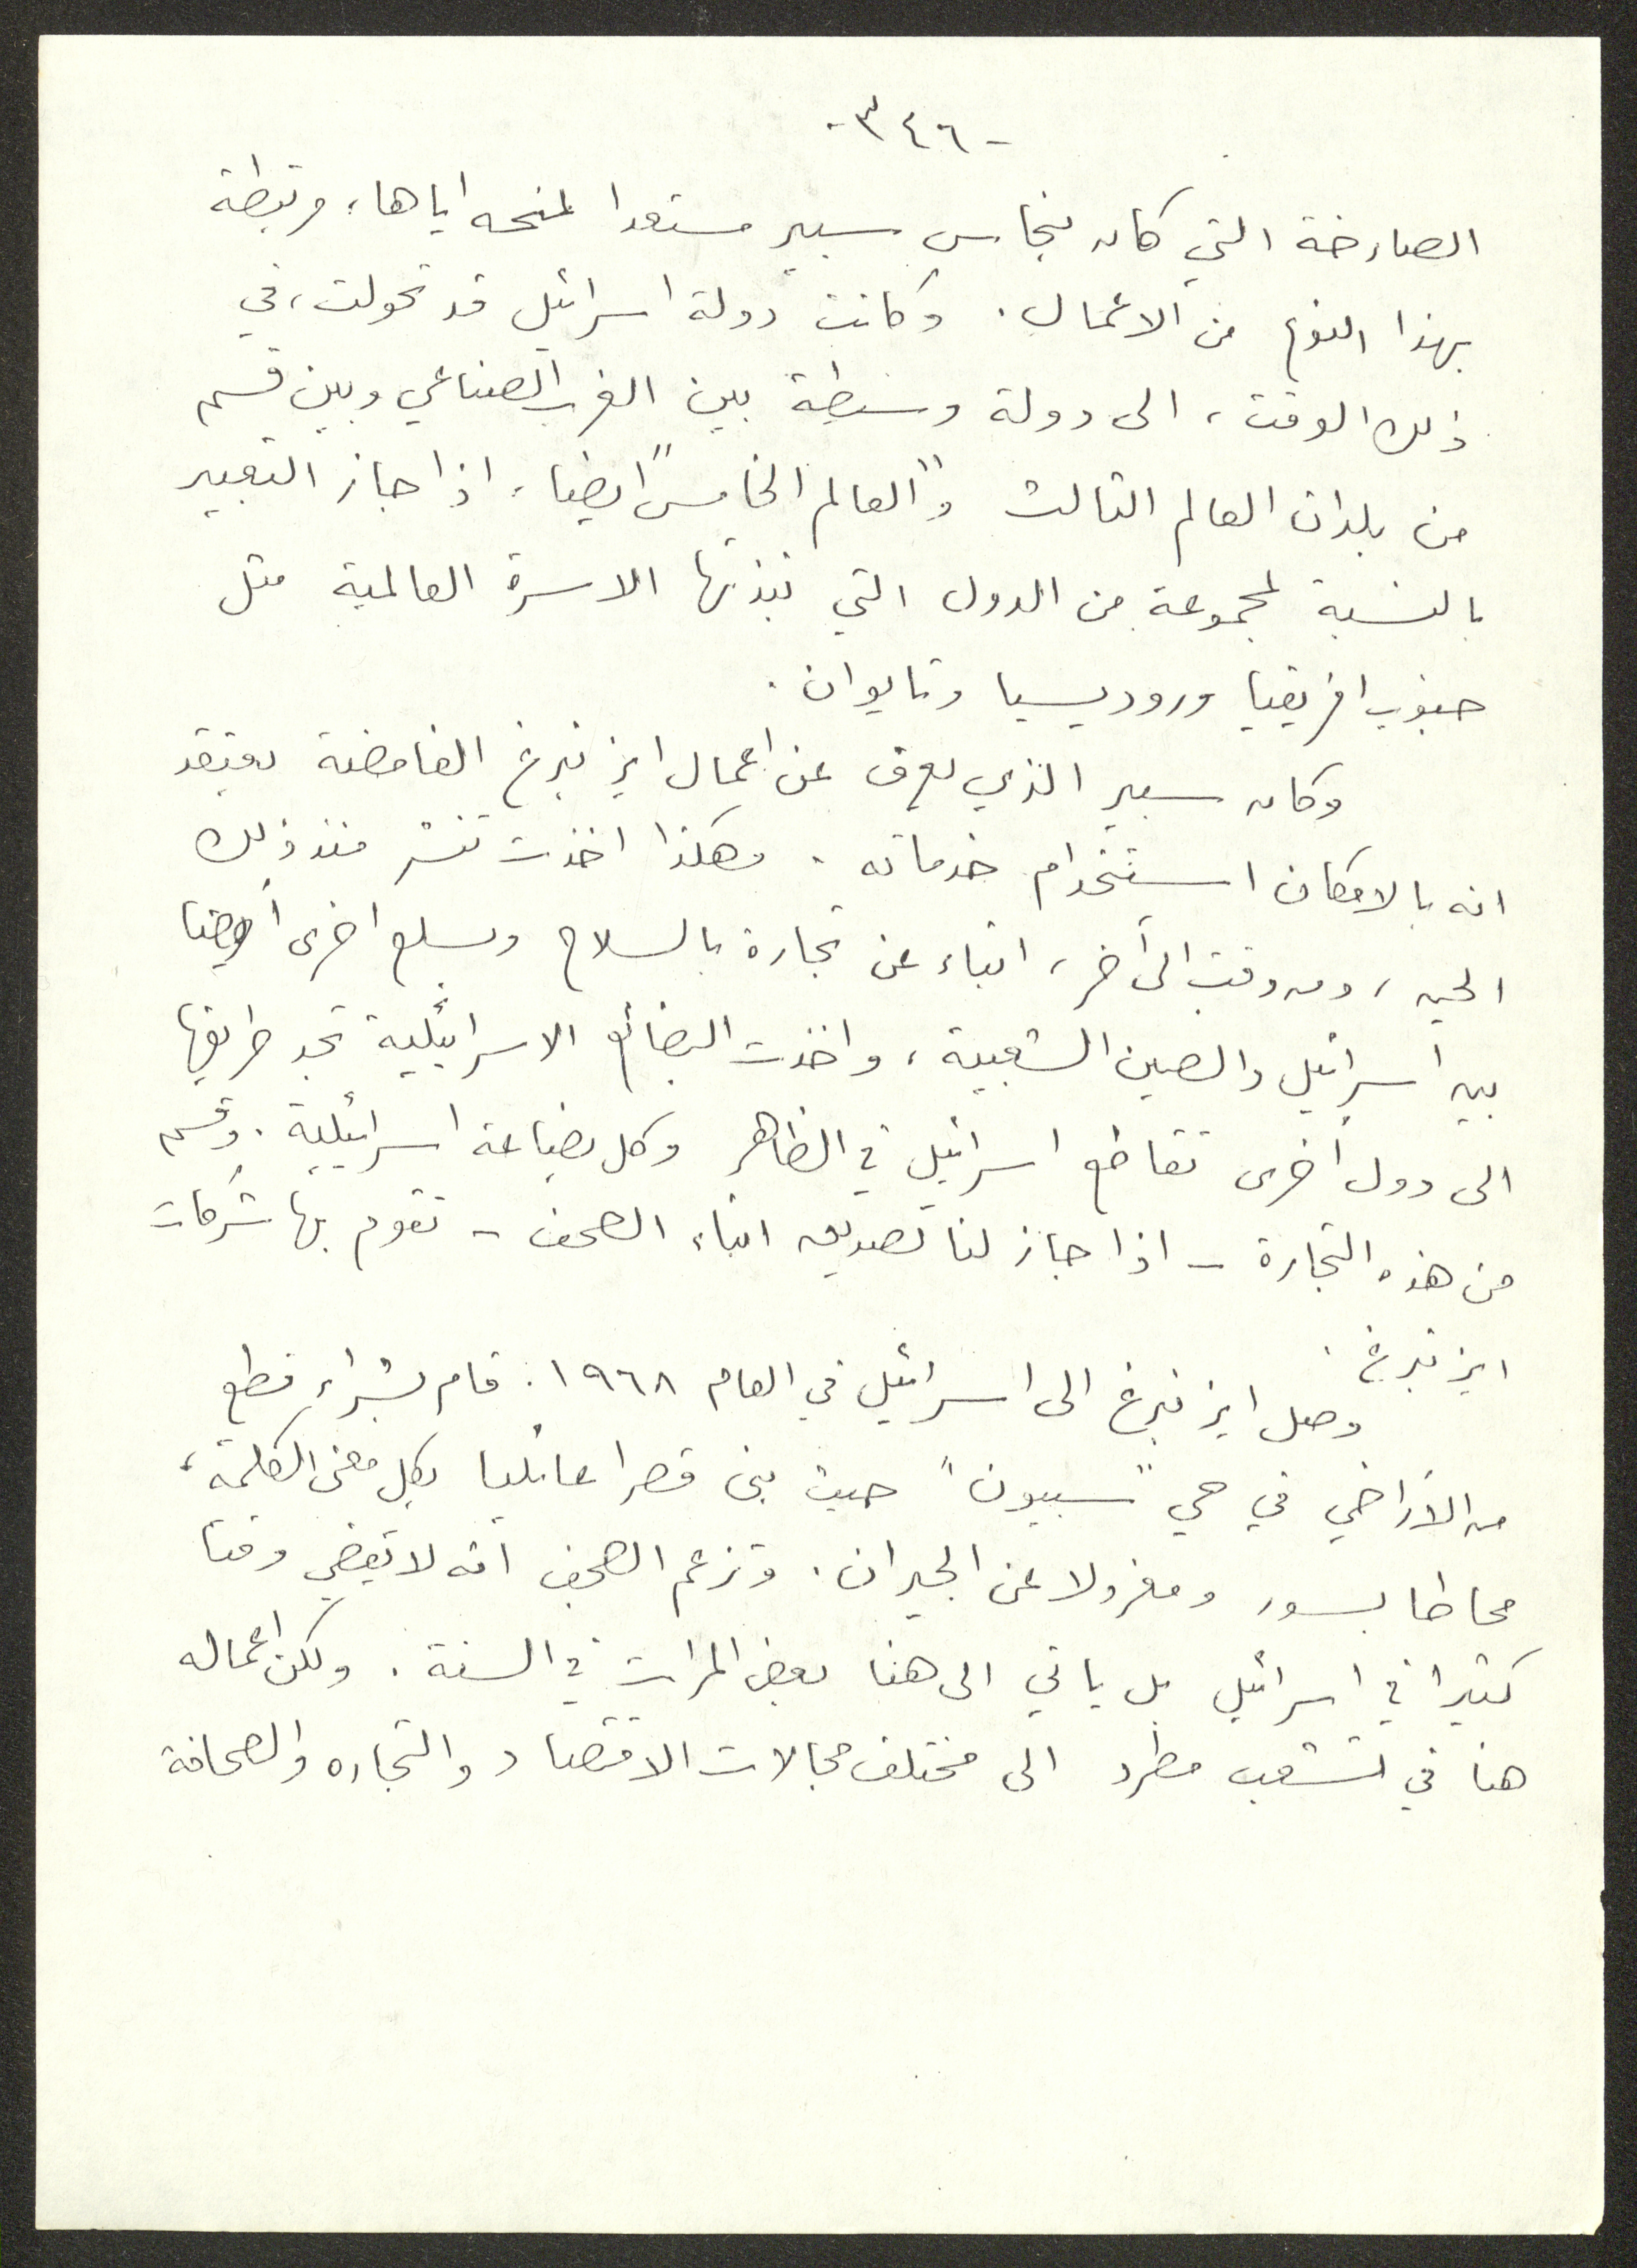 -٣٤٦-
الصارخة التي كان بنحاس سبير مستعدا لمنحه اياها، مرتبطة
بهذا النوع من الاعمال. وكانت دولة اسرائيل قد تحولت، في
ذلك الوقت، الى دولة وسيطة بين الغرب الصناعي وبين قسم
من بلدان العالم الثالث و"العالم الخامس" ايضا، اذا جاز التعبير
بالنسبة لمجموعة من الدول التي نبذتها الاسرة العالمية مثل
جنوب افريقيا وروديسيا وتايوان.
وكان سبير الذي يعرف عن اعمال ايزنبرغ الغامضة يعتقد
انه بالامكان استخدام خدماته. وهكذا اخذت تنشر منذ ذلك
الحين، ومن وقت الى آخر، انباء عن تجارة بالسلاح وبسلع اخرى أيضا
بين اسرائيل والصين الشعبية، واخذت البضائع الاسرائيلية تجد طريقها
الى دول أخرى تقاطع اسرائيل في الظاهر وكل بضاعة اسرائيلية. وقسم
من هذه التجارة - اذا جاز لنا تصديق انباء الصحف - تقوم بها شركات
ايزنبرغ.
وصل ايزنبرغ الى اسرائيل في العام ١٩٦٨. قام بشراء قطع
من الأراضي في حي "سبيون" حيث بنى قصرا عائليا بكل معنى الكلمة،
محاطا بسور ومعزولا عن الجيران. وتزعم الصحف انه لا يقضي وقتا
كثيرا في اسرائيل بل ياتي الى هنا بعض المرات في السنة. ولكن اعماله
هنا في تشعب مطرد الى مختلف مجالات الاقتصاد والتجاره والصحافة